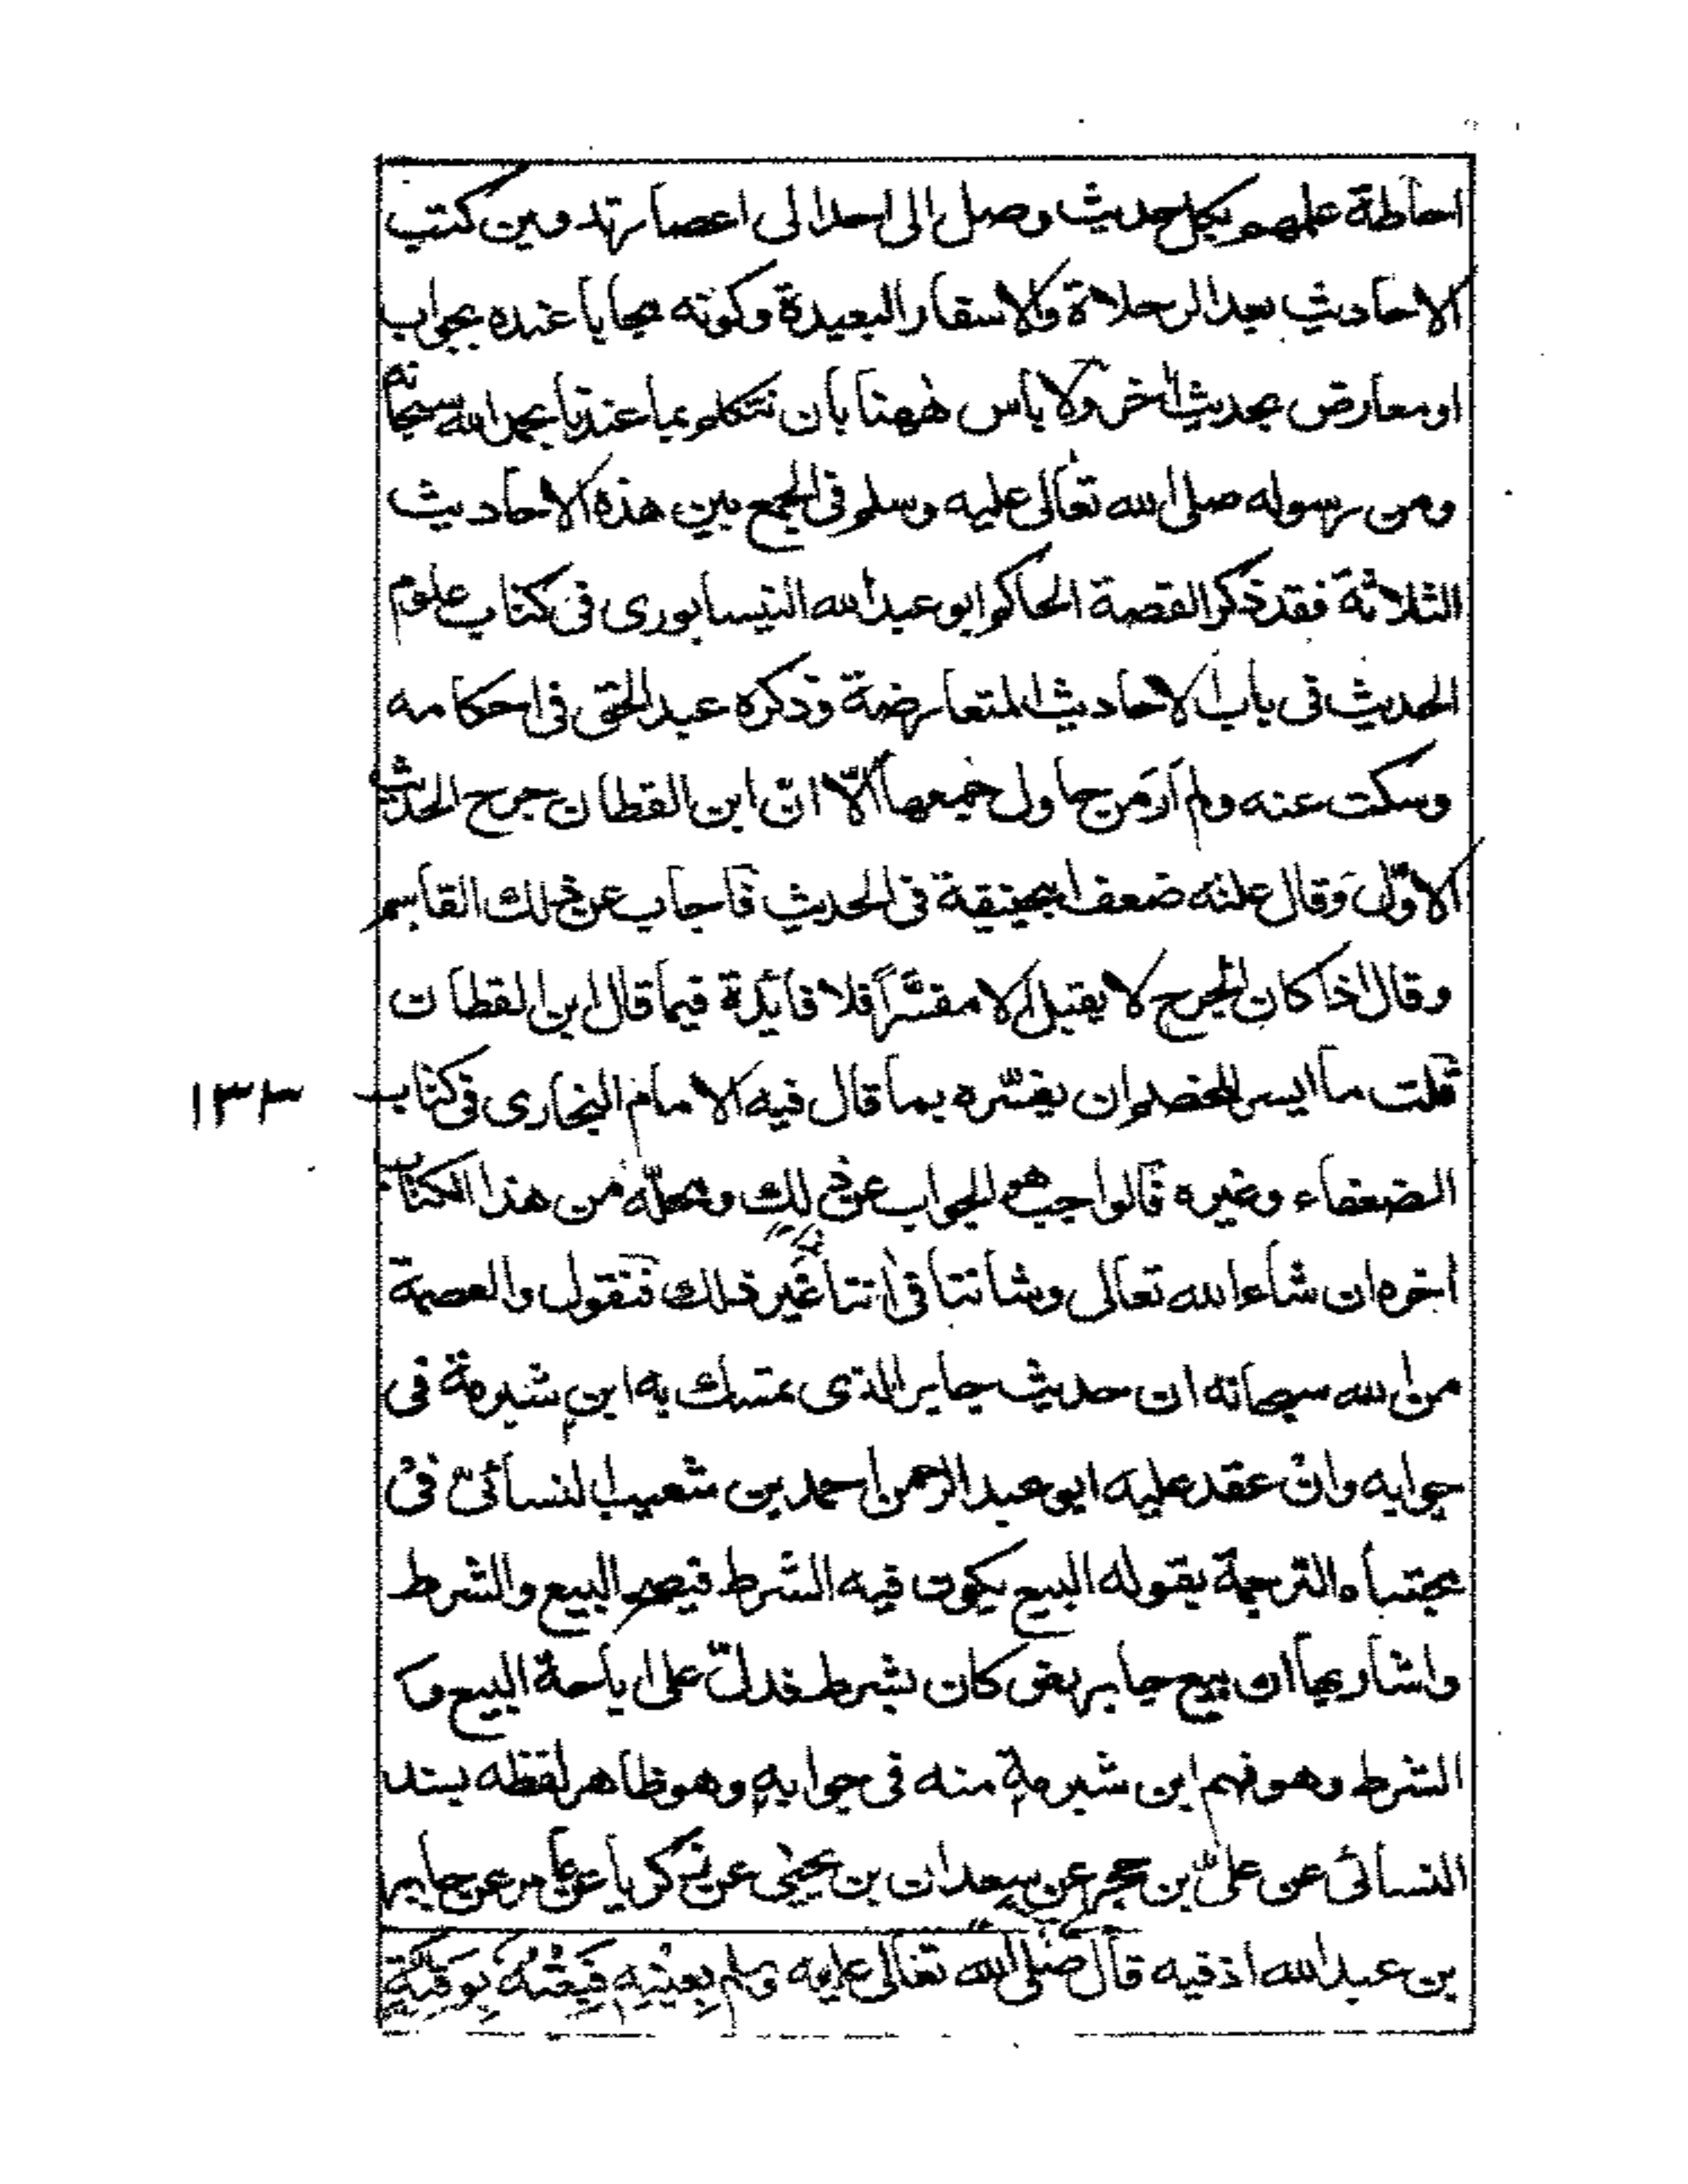 احاطة علمهم بكل حديث وصل الى احد الى اعصار تدوين كتب
الاحاديث بعد الرحلاة والاسفار البعيدة وكونه مجابا عنده بجواب
او معارض بحديث اخر ولا باس ههنا بان نتكلم بما عندنا بحمد الله سبحانه
ومن رسوله صلى الله تعالى عليه وسلم في الجمع بين هذه الاحاديث
الثلاثة فقد ذكر القصة الحاكم ابو عبد الله النيسابوري في كتاب علوم
الحديث في باب الاحاديث المتعارضة وذكره عبد الحق في احكامه
وسكت عنه ولم اَرَ من حاول جمعها الّا انّ ابن القطان جرح الحديث
الاوّل وقال علته ضعف ابي حنيفة في الحديث فاجاب عن ذلك القاسم
وقال اذا كان الجرح لا يقبل الا مفسَّراً فلا فائدة فيما قال ابن القطان
قلت ما ايسر للخصم ان يفسّره بما قال فيه الامام البخاري في كتاب
١٣٣
الضعفاء وغيره فالواجب هو الجواب عن ذلك ومحلّه من هذا الكتاب
اخره ان شاء الله تعالى وشاننا في اننا غير ذلك فنقول والعصمة
من الله سبحانه ان حديث جابر الذي تمسك به ابن شبرمة في
جوابه وان عقد عليه ابو عبد الرحمن احمد بن شعيب النسائيّ في
مجتباه الترجمة بقوله البيع يكون فيه الشرط فيصح البيع والشرط
واشار بها ان بيع جابر رض كان بشرط فدلّ على اباحة البيع و
الشرط وهو فهم ابن شبرمة منه في جوابه وهو ظاهر لفظه بسند
النسائي عن عليّ بن حجر عن سعدان بن يحيى عن زكريا عن عامر عن جابر
بن عبد الله اذ فيه قال صلى الله تعالى عليه وسلم بِعْنِيْهِ فَبِعْتُهُ بِوَقِيَّةٍ